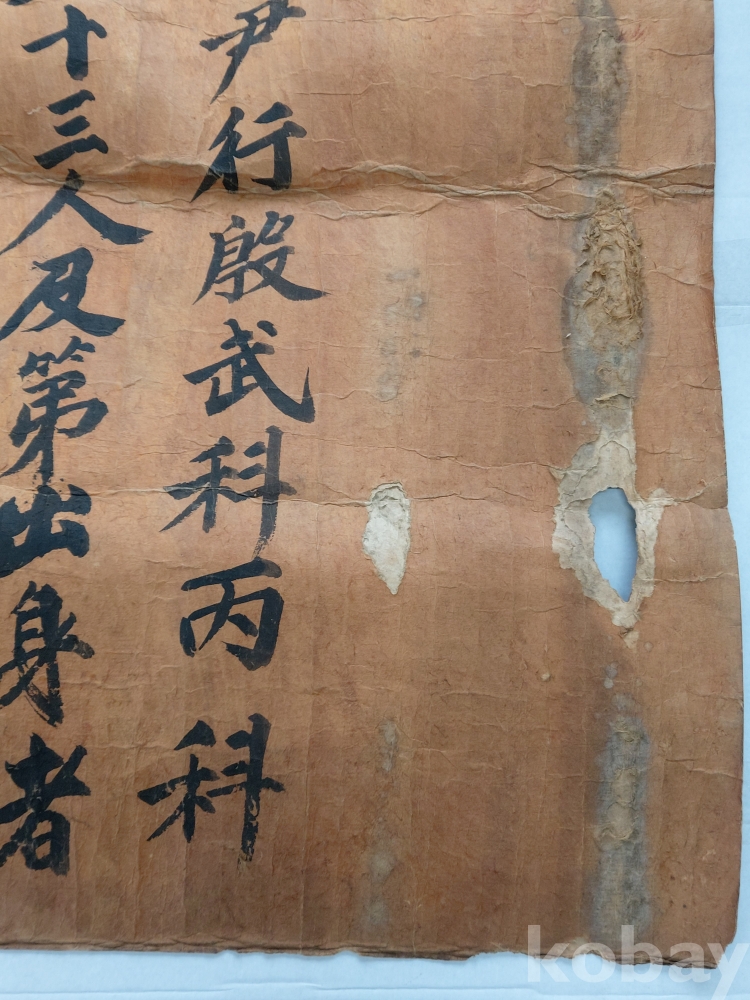 尹行殷武科丙科
十三人及第出身者
kobay